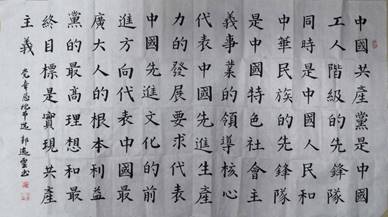 中國共產黨是中國
工人階級的先鋒隊
同時是中國人民和
中華民族的先鋒隊
是中國特色社會主
義事業的領導核心
代表中國先進生產
力的發展要求代表
中國先進文化的前
進方向代表中國最
廣大人的根本利益
黨的最高理想和最
終目標是實現共產
主義